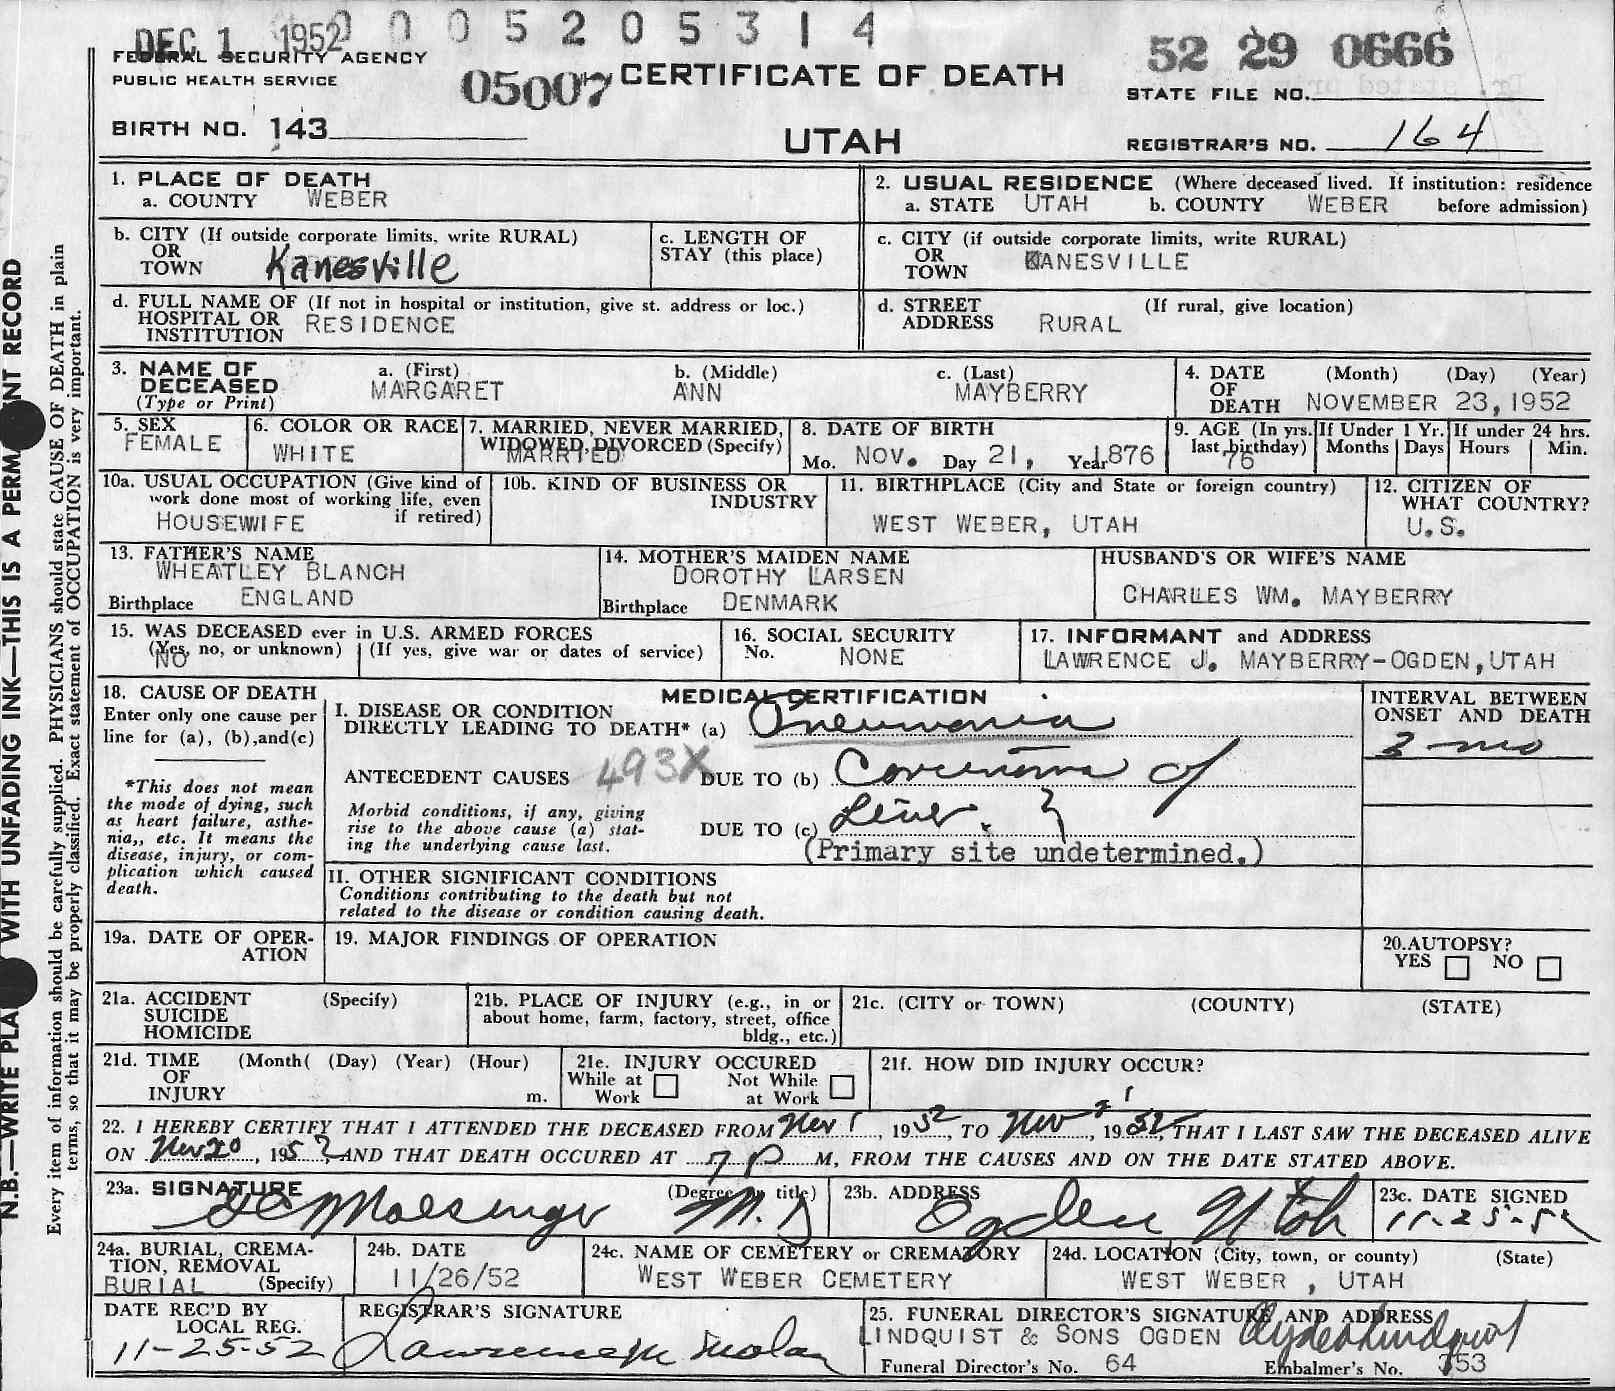 DEC 1 1952 0 0 0 5 2 0 5 3 1 4
FEDERAL SECURITY AGENCY
PUBLIC HEALTH SERVICE
05007 CERTIFICATE OF DEATH
52 29 0666
STATE FILE NO.
BIRTH NO. 143
UTAH
REGISTRAR'S NO. 164
1. PLACE OF DEATH
a. COUNTY WEBER
2. USUAL RESIDENCE (Where deceased lived. If institution: residence
a. STATE UTAH b. COUNTY WEBER before admission)
b. CITY (If outside corporate limits, write RURAL)
OR
TOWN Kanesville
c. LENGTH OF
STAY (this place)
c. CITY (if outside corporate limits, write RURAL)
OR
TOWN KANESVILLE
d. FULL NAME OF (If not in hospital or institution, give st. address or loc.)
HOSPITAL OR
INSTITUTION RESIDENCE
d. STREET (If rural, give location)
ADDRESS RURAL
3. NAME OF
DECEASED
(Type or Print)
a. (First)
MARGARET
b. (Middle)
ANN
c. (Last)
MAYBERRY
4. DATE (Month) (Day) (Year)
OF
DEATH NOVEMBER 23, 1952
5. SEX
FEMALE
6. COLOR OR RACE
WHITE
7. MARRIED, NEVER MARRIED,
WIDOWED, DIVORCED (Specify)
MARRIED
8. DATE OF BIRTH
Mo. NOV. Day 21, Year 1876
9. AGE (In yrs.
last birthday)
76
If Under 1 Yr.
Months Days
If under 24 hrs.
Hours Min.
10a. USUAL OCCUPATION (Give kind of
work done most of working life, even
if retired)
HOUSEWIFE
10b. KIND OF BUSINESS OR
INDUSTRY
11. BIRTHPLACE (City and State or foreign country)
WEST WEBER, UTAH
12. CITIZEN OF
WHAT COUNTRY?
U.S.
13. FATHER'S NAME
WHEATLEY BLANCH
Birthplace ENGLAND
14. MOTHER'S MAIDEN NAME
DOROTHY LARSEN
Birthplace DENMARK
HUSBAND'S OR WIFE'S NAME
CHARLES WM. MAYBERRY
15. WAS DECEASED ever in U.S. ARMED FORCES
(Yes, no, or unknown) (If yes, give war or dates of service)
NO
16. SOCIAL SECURITY
No. NONE
17. INFORMANT and ADDRESS
LAWRENCE J. MAYBERRY-OGDEN, UTAH
18. CAUSE OF DEATH
Enter only one cause per
line for (a), (b),and(c)
*This does not mean
the mode of dying, such
as heart failure, asthe-
nia,, etc. It means the
disease, injury, or com-
plication which caused
death.
MEDICAL CERTIFICATION
I. DISEASE OR CONDITION
DIRECTLY LEADING TO DEATH* (a) Pneumonia
ANTECEDENT CAUSES 493X DUE TO (b) Carcinoma of
Morbid conditions, if any, giving
rise to the above cause (a) stat-
ing the underlying cause last.
DUE TO (c) Liver. ?
(Primary site undetermined.)
INTERVAL BETWEEN
ONSET AND DEATH
3 mo
II. OTHER SIGNIFICANT CONDITIONS
Conditions contributing to the death but not
related to the disease or condition causing death.
19a. DATE OF OPER-
ATION
19. MAJOR FINDINGS OF OPERATION
20. AUTOPSY?
YES NO
21a. ACCIDENT (Specify)
SUICIDE
HOMICIDE
21b. PLACE OF INJURY (e.g., in or
about home, farm, factory, street, office
bldg., etc.)
21c. (CITY or TOWN) (COUNTY) (STATE)
21d. TIME (Month( (Day) (Year) (Hour)
OF
INJURY m.
21e. INJURY OCCURED
While at Work
Not While at Work
21f. HOW DID INJURY OCCUR?
22. I HEREBY CERTIFY THAT I ATTENDED THE DECEASED FROM Nov 1, 1952 TO Nov 21, 1952, THAT I LAST SAW THE DECEASED ALIVE
ON Nov 20, 1952, AND THAT DEATH OCCURED AT 7 P M, FROM THE CAUSES AND ON THE DATE STATED ABOVE.
23a. SIGNATURE (Degree or title)
Moesinger M.D
23b. ADDRESS
Ogden Utah
23c. DATE SIGNED
11-25-52
24a. BURIAL, CREMA-
TION, REMOVAL
BURIAL (Specify)
24b. DATE
11/26/52
24c. NAME OF CEMETERY or CREMATORY
WEST WEBER CEMETERY
24d. LOCATION (City, town, or county) (State)
WEST WEBER, UTAH
DATE REC'D BY
LOCAL REG.
11-25-52
REGISTRAR'S SIGNATURE
Lawrence M Malan
25. FUNERAL DIRECTOR'S SIGNATURE AND ADDRESS
LINDQUIST & SONS OGDEN Clyde Lindquist
Funeral Director's No. 64 Embalmer's No. 353
N.B.—WRITE PLA WITH UNFADING INK—THIS IS A PERM NT RECORD
Every item of information should be carefully supplied. PHYSICIANS should state CAUSE OF DEATH in plain
terms, so that it may be properly classified. Exact statement of OCCUPATION is very important.